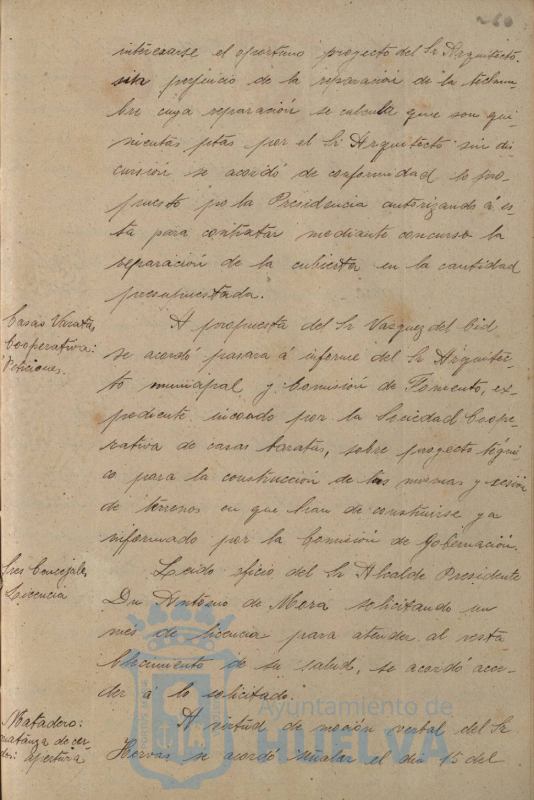 260
interesarse el oportuno proyecto del Sr Arquitecto.
sin perjuicio de la reparación de la techum-
bre cuya reparación se calcula que son qui-
nientas ptas por el Sr Arquitecto sin dis-
cursión se acordó de conformidad lo pro-
puesto por la Presidencia autorizando á es-
ta para contratar mediante concurso la
reparación de la cubierta en la cantidad
presupuestada.
Casas Baratas
Cooperativa:
Peticiones.
A propuesta del Sr Vazquez del Cid
se acordó pasara á informe del Sr Arquitec-
to municipal y Comisión de Fomento, ex-
pediente incoado por la Sociedad Coope-
rativa de casas baratas, sobre proyecto tégni-
co para la construcción de las mismas y cesión
de terrenos en que han de construirse ya
informado por la Comisión de Gobernación.
Sres Concejales
Licencia
Leido oficio del Sr Alcalde Presidente
Dn Antonio de Mora solicitando un
mes de licencia para atender al resta
blecimiento de su salud, se acordó acce-
der á lo solicitado.
Matadero:
matanza de cer-
dos: apertura
A virtud de moción verbal del Sr
Hervas se acordó señalar el dia 15 del
Ayuntamiento de
HUELVA